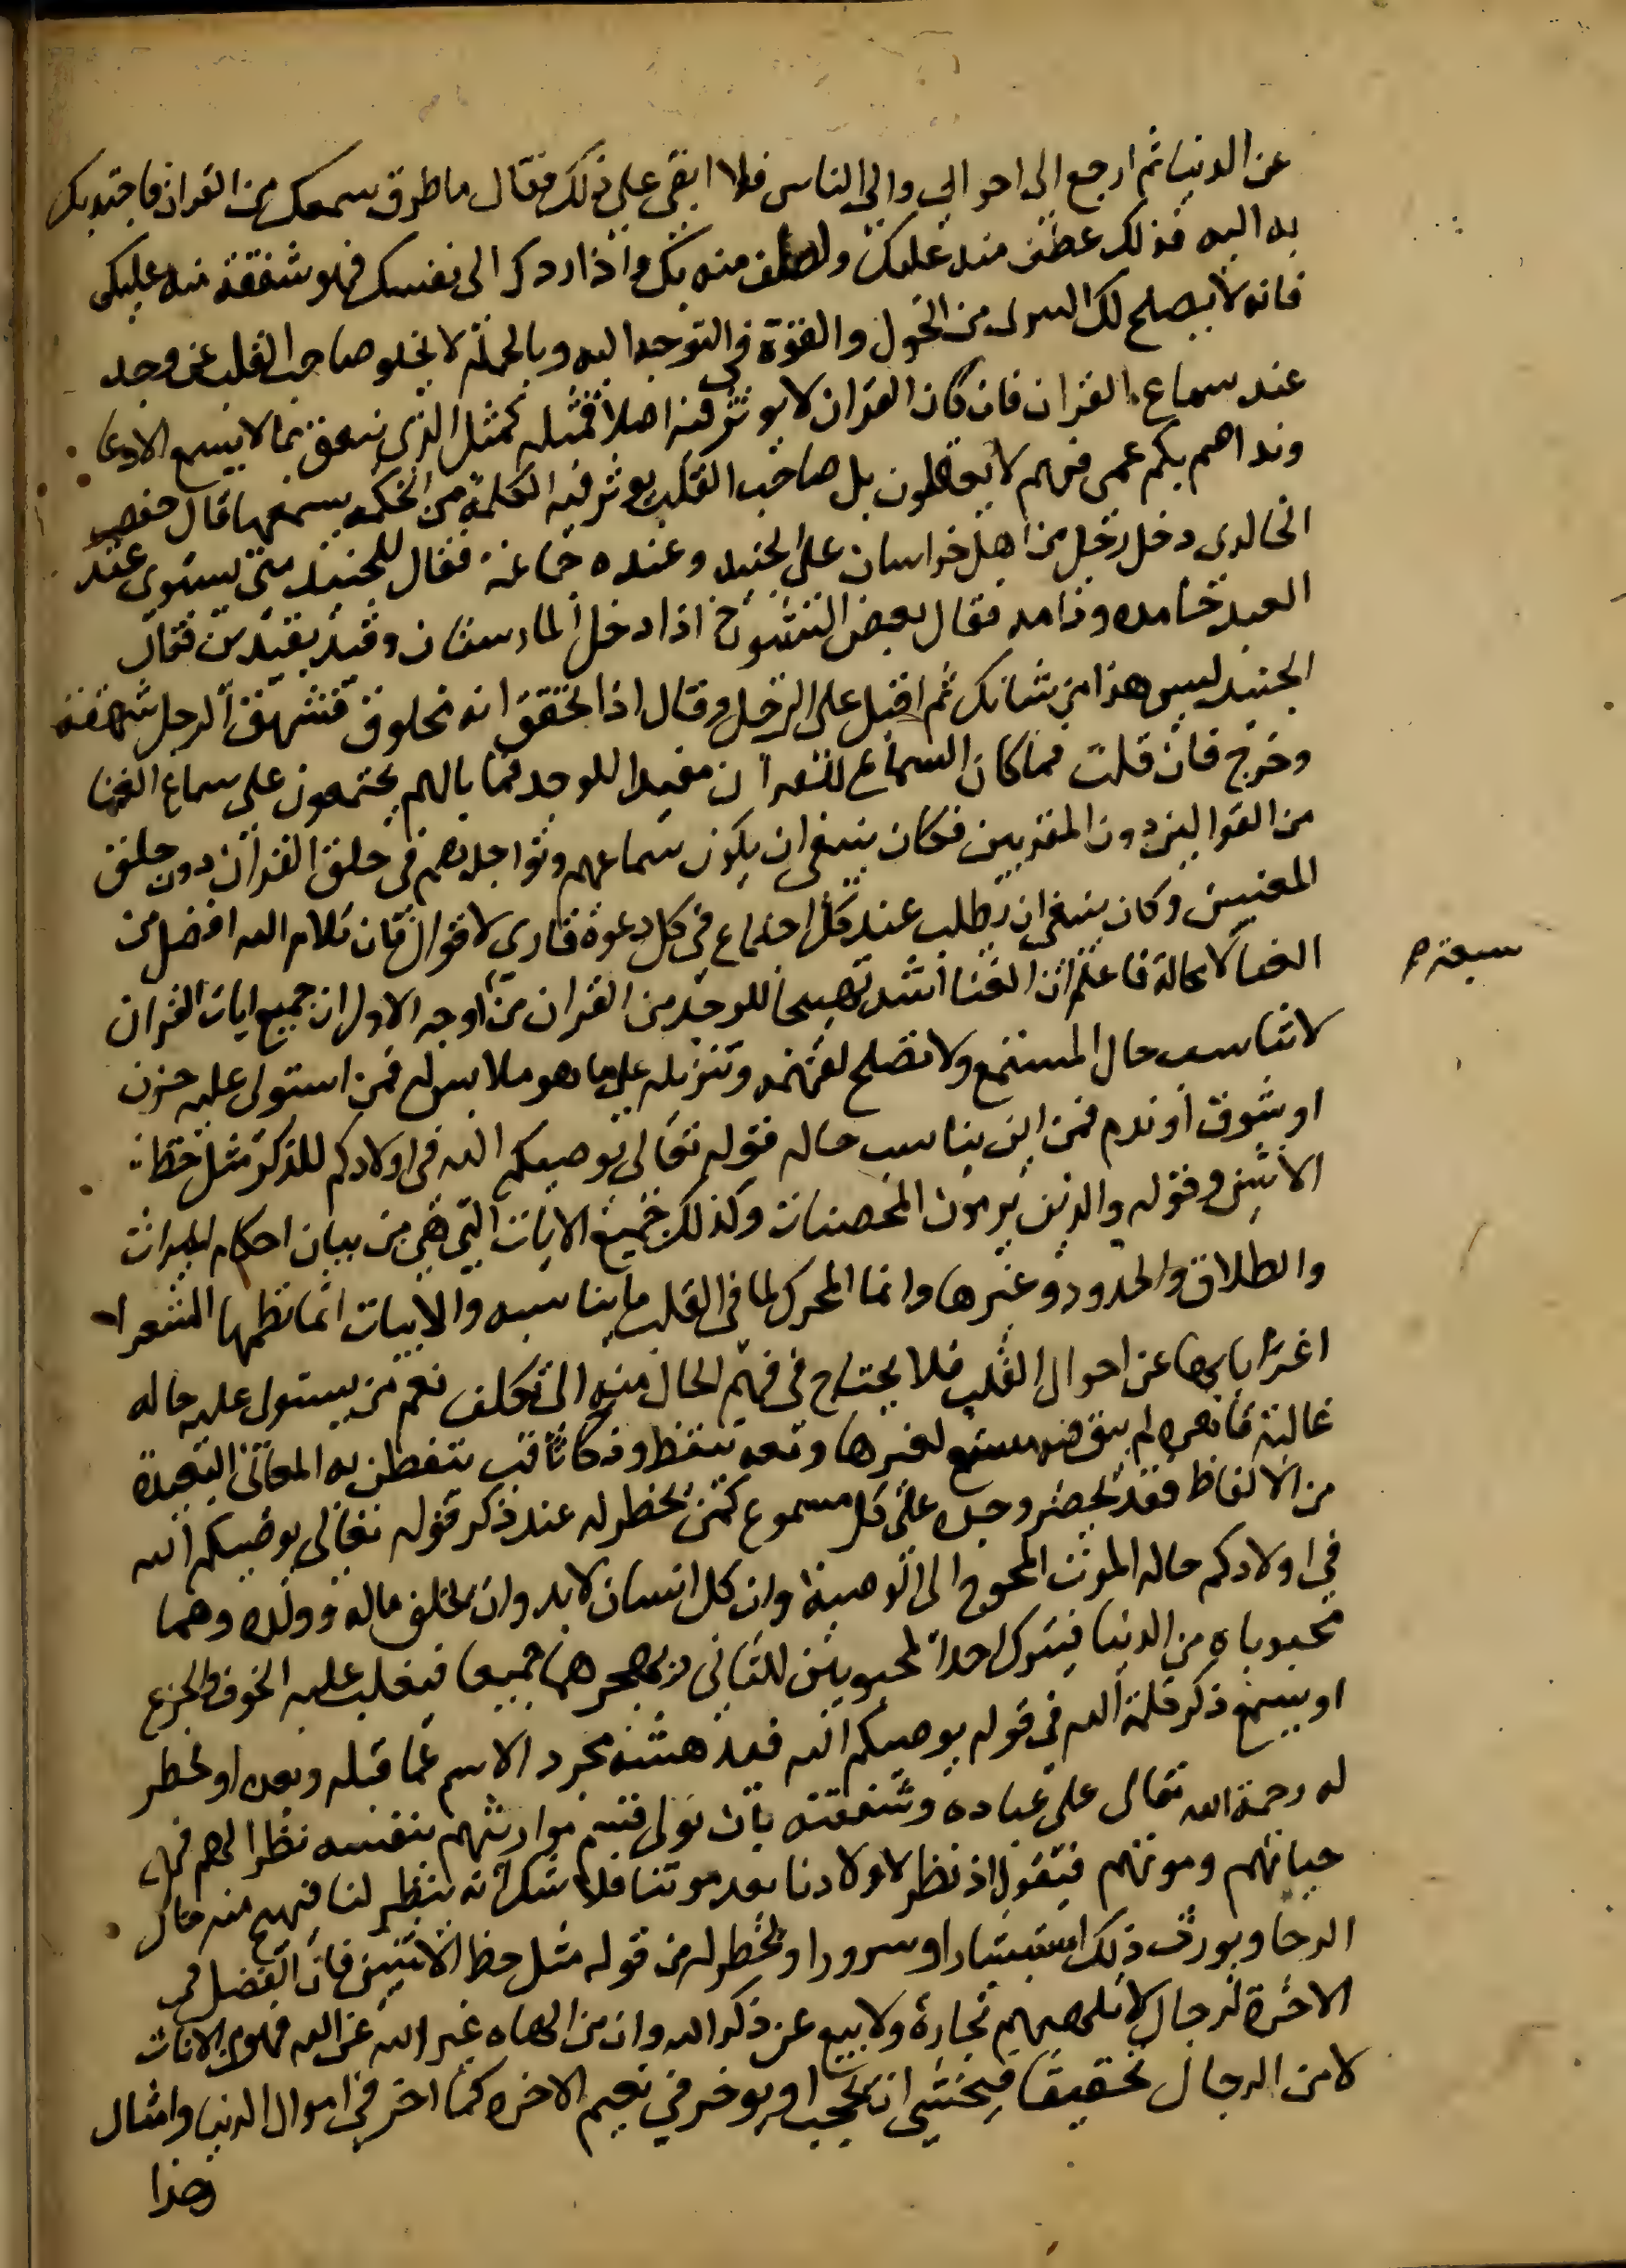 عن الدنيا ثم ارجع الى احوالي والى الناس فلا ابقى على ذلك فقال ما طرق سمعك من القران فاجتذبك
به اليه فذلك عطف منه عليك ولطف منه بك واذا ردك الى نفسك فهو شفقة منه عليك
فانه لا يصلح لك التبرى من الحول والقوة في التوجه اليه وبالجملة لا يخلو صاحب القلب عن وجد
عند سماع القران فان كان القران لا يوثر فيه اصلا فمثله كمثل الذى ينعق بما لا يسمع الا دعا
وندا صم بكم عمى فهم لا يعقلون بل صاحب القلب يوثر فيه الكلمة من الحكمة يسمعها قال جعفر
الخالدى دخل رجل من اهل خراسان على الجنيد وعنده جماعة فقال للجنيد متى يستوى عند
العبد حامده وذامه فقال بعض الشيوخ اذا دخل المارستان وقيد بقيدين فقال
الجنيد ليس هذا من شانك ثم اقبل على الرجل وقال اذا تحقق انه مخلوق فشهق الرجل شهقة
وخرج فان قلت فما كان السماع للقران مفيدا للوجد فما بالهم يجتمعون على سماع الغنا
من القوالين دون المقريين فكان ينبغى ان يكون سماعهم وتواجدهم في حلق القران دون حلق
المغنيين وكان ينبغى ان يطلب عند كل اجتماع في كل دعوة قارى لا قوال فان كلام الله افضل من
الغنا لا محالة فاعلم ان الغنا اشد تهييجا للوجد من القران من اوجه الاول ان جميع ايات القران
سبعة صح
لا تناسب حال المستمع ولا تصلح لفهمه وتنزيله على ما هو ملابس له فمن استولى عليه حزن
او شوق او ندم فمن اين يناسب حاله قوله تعالى يوصيكم الله فى اولادكم للذكر مثل حظ
الانثيين وقوله والذين يرمون المحصنات وكذلك جميع الايات التى هى من بيان احكام الميراث
والطلاق والحدود وغيرها وانما المحرك لما فى القلب ما يناسبه والابيات انما نظمها الشعرا
اعرابا بها عن احوال القلب فلا يحتاج في فهم الحال منه الى تكلف نعم من يستولى عليه حالة
غالبة قاهرة لم يبق فيه متسع لغيرها ومعه تيقظ وذكا ثاقب يتفطن به المعانى البعيدة
من الالفاظ فقد يحضر وجده على كل مسموع كمن يخطر له عند ذكر قوله تعالى يوصيكم الله
في اولادكم حالة الموت المحوج الى الوصية وان كل انسان لا بد وان يخلف ماله وولده وهما
محبوباه من الدنيا فيترك احد المحبوبين للثانى ويهجرهما جميعا فيغلب عليه الخوف والجزع
او يسمع ذكر كلمة الله في قوله يوصيكم الله فيدهشه مجرد الاسم عما قبله وبعده او يخطر
له رحمة الله تعالى على عباده وشفقته بان تولى قسم مواريثهم بنفسه نظرا لهم في
حياتهم وموتهم فيقول اذ نظر لاولادنا بعد موتنا فلا شك انه ينظر لنا فيهيج منه حال
الرجا ويورث ذلك استبشارا وسرورا او يخطر له من قوله مثل حظ الانثيين فان الفضل في
الاخرة لرجال لا تلهيهم تجارة ولا بيع عن ذكر الله وان من الهاه غير الله عن الله فهو من الاناث
لا من الرجال تحقيقا فيخشى ان يحجب او يوخر في نعيم الاخرة كما اخر في اموال الدنيا وامثال
هذا